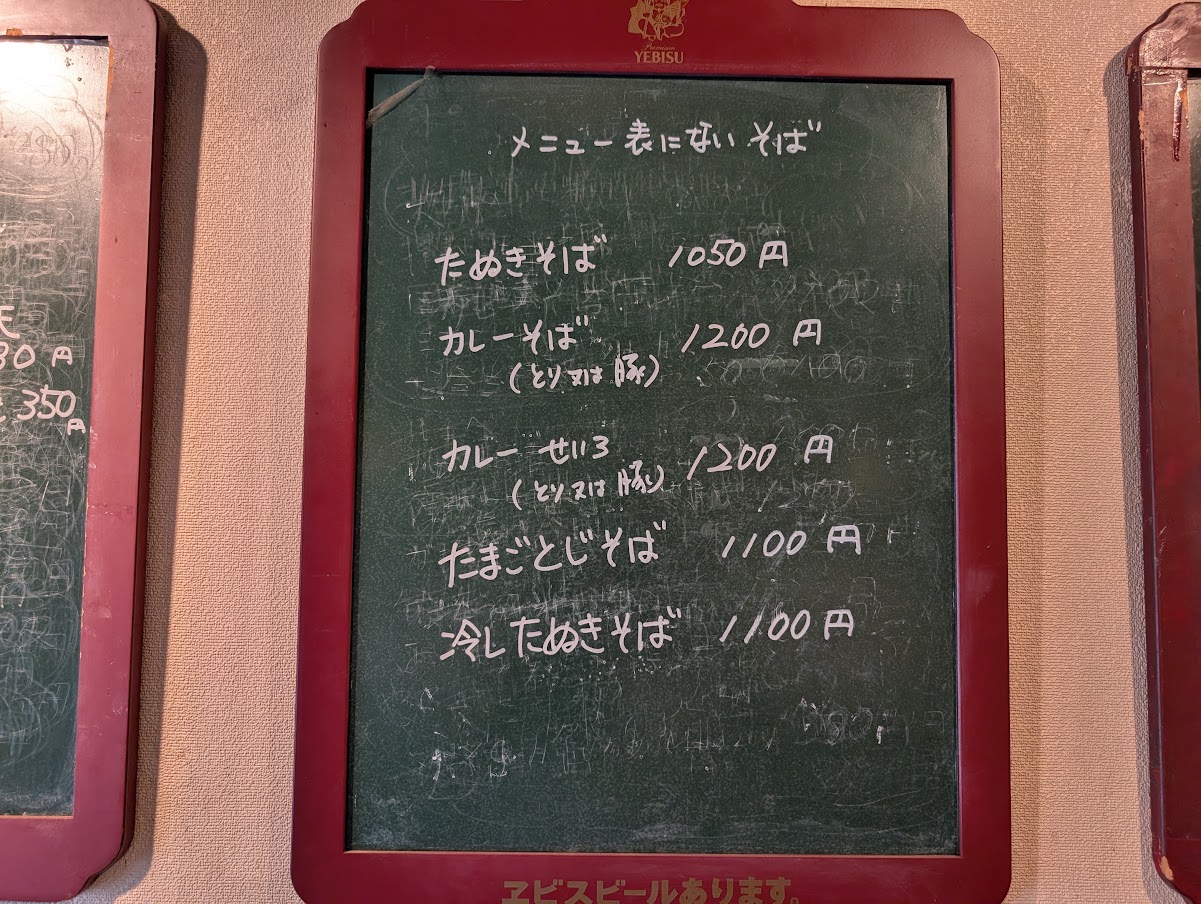 Premium
YEBISU
メニュー表にないそば
たぬきそば 1050円
カレーそば 1200円
(とり又は豚)
カレーせいろ 1200円
(とり又は豚)
たまごとじそば 1100円
冷したぬきそば 1100円
ヱビスビールあります。
天
30円
350円